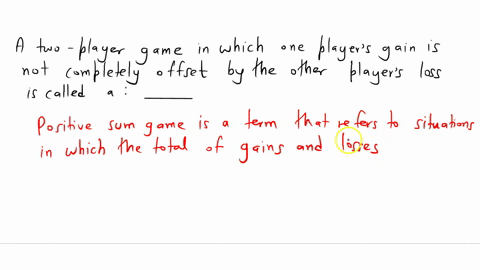 A two-player game in which one player's gain is
not completely offset by the other player's loss
is called a: ______
Positive sum game is a term that refers to situations
in which the total of gains and losses